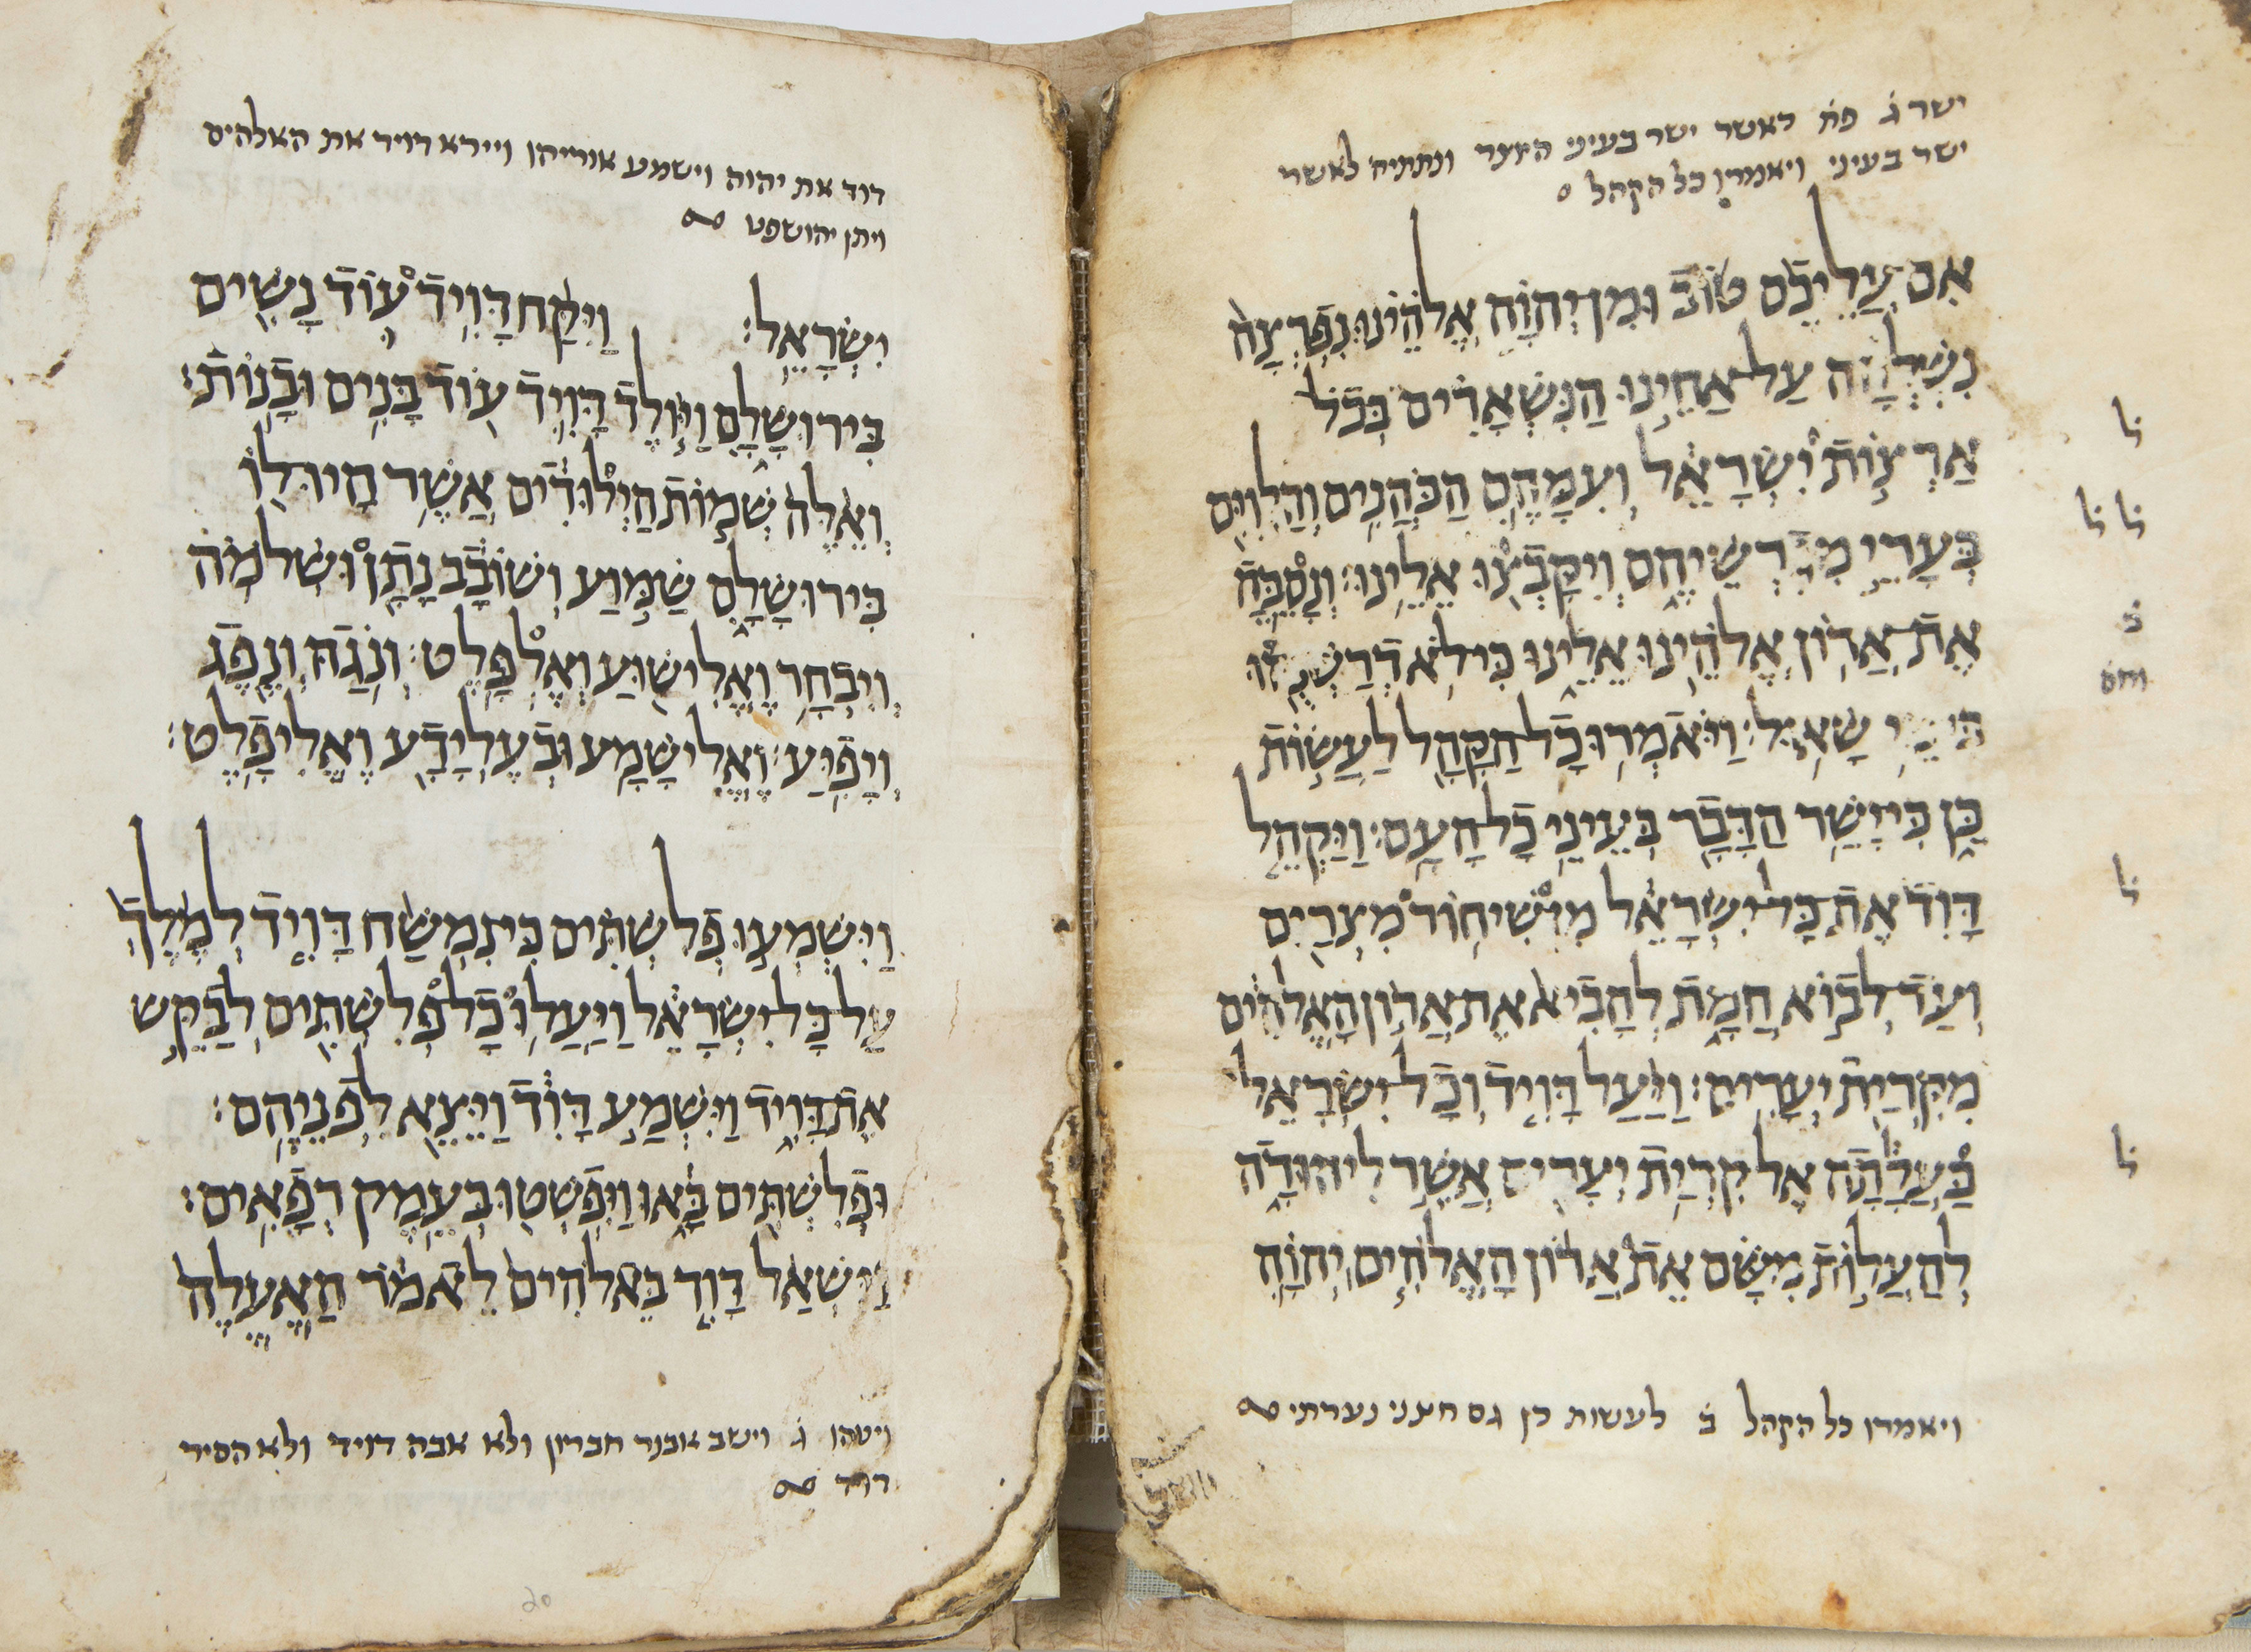 ישר ג פת כאשר ישר בעיני היוצר ונתתיה לאשר
ישר בעיני ויאמרו כל הקהל
אִם עֲלֵיכֶם טוֹב וּמִן יְהוָה אֱלֹהֵינוּ נִפְרְצָה
נִשְׁלְחָה עַל אַחֵינוּ הַנִּשְׁאָרִים בְּכֹל
אַרְצוֹת יִשְׂרָאֵל וְעִמָּהֶם הַכֹּהֲנִים וְהַלְוִיִּם
בְּעָרֵי מִגְרְשֵׁיהֶם וְיִקָּבְצוּ אֵלֵינוּ׃ וְנָסֵבָּה
אֶת אֲרוֹן אֱלֹהֵינוּ אֵלֵינוּ כִּי לֹא דְרַשְׁנֻהוּ
בִּימֵי שָׁאוּל׃ וַיֹּאמְרוּ כָל הַקָּהָל לַעֲשׂוֹת
כֵּן כִּי יָשַׁר הַדָּבָר בְּעֵינֵי כָל הָעָם׃ וַיַּקְהֵל
דָּוִד אֶת כָּל יִשְׂרָאֵל מִן שִׁיחוֹר מִצְרַיִם
וְעַד לְבוֹא חֲמָת לְהָבִיא אֶת אֲרוֹן הָאֱלֹהִים
מִקִּרְיַת יְעָרִים׃ וַיַּעַל דָּוִיד וְכָל יִשְׂרָאֵל
בַּעֲלָתָה אֶל קִרְיַת יְעָרִים אֲשֶׁר לִיהוּדָה
לְהַעֲלוֹת מִשָּׁם אֵת אֲרוֹן הָאֱלֹהִים יְהוָה
ויאמרו כל הקהל ב לעשות כן גם חצני נערתי
ל
ל ל
ל
ל
דוד את יהוה וישמע אוריהו ויירא דויד את האלהים
ויתן יהושפט
יִשְׂרָאֵל׃ וַיִּקַּח דָּוִיד עוֹד נָשִׁים
בִּירוּשָׁלָם וַיּוֹלֶד דָּוִיד עוֹד בָּנִים וּבָנוֹת׃
וְאֵלֶּה שְׁמוֹת הַיְלוּדִים אֲשֶׁר הָיוּ לוֹ
בִּירוּשָׁלָם שַׁמּוּעַ וְשׁוֹבָב נָתָן וּשְׁלֹמֹה
וְיִבְחָר וֶאֱלִישׁוּעַ וְאֶלְפָּלֶט׃ וְנֹגַהּ וְנֶפֶג
וְיָפִיעַ׃ וֶאֱלִישָׁמָע וּבְעֶלְיָדָע וֶאֱלִיפָלֶט׃
וַיִּשְׁמְעוּ פְלִשְׁתִּים כִּי נִמְשַׁח דָּוִיד לְמֶלֶךְ
עַל כָּל יִשְׂרָאֵל וַיַּעֲלוּ כָל פְּלִשְׁתִּים לְבַקֵּשׁ
אֶת דָּוִיד וַיִּשְׁמַע דָּוִד וַיֵּצֵא לִפְנֵיהֶם׃
וּפְלִשְׁתִּים בָּאוּ וַיִּפְשְׁטוּ בְּעֵמֶק רְפָאִים׃
וַיִּשְׁאַל דָּוִד בֵּאלֹהִים לֵאמֹר הַאֶעֱלֶה
ויטהו ג וישב אבנר חברון ולא אבה דויד ולא הסיר
דוד